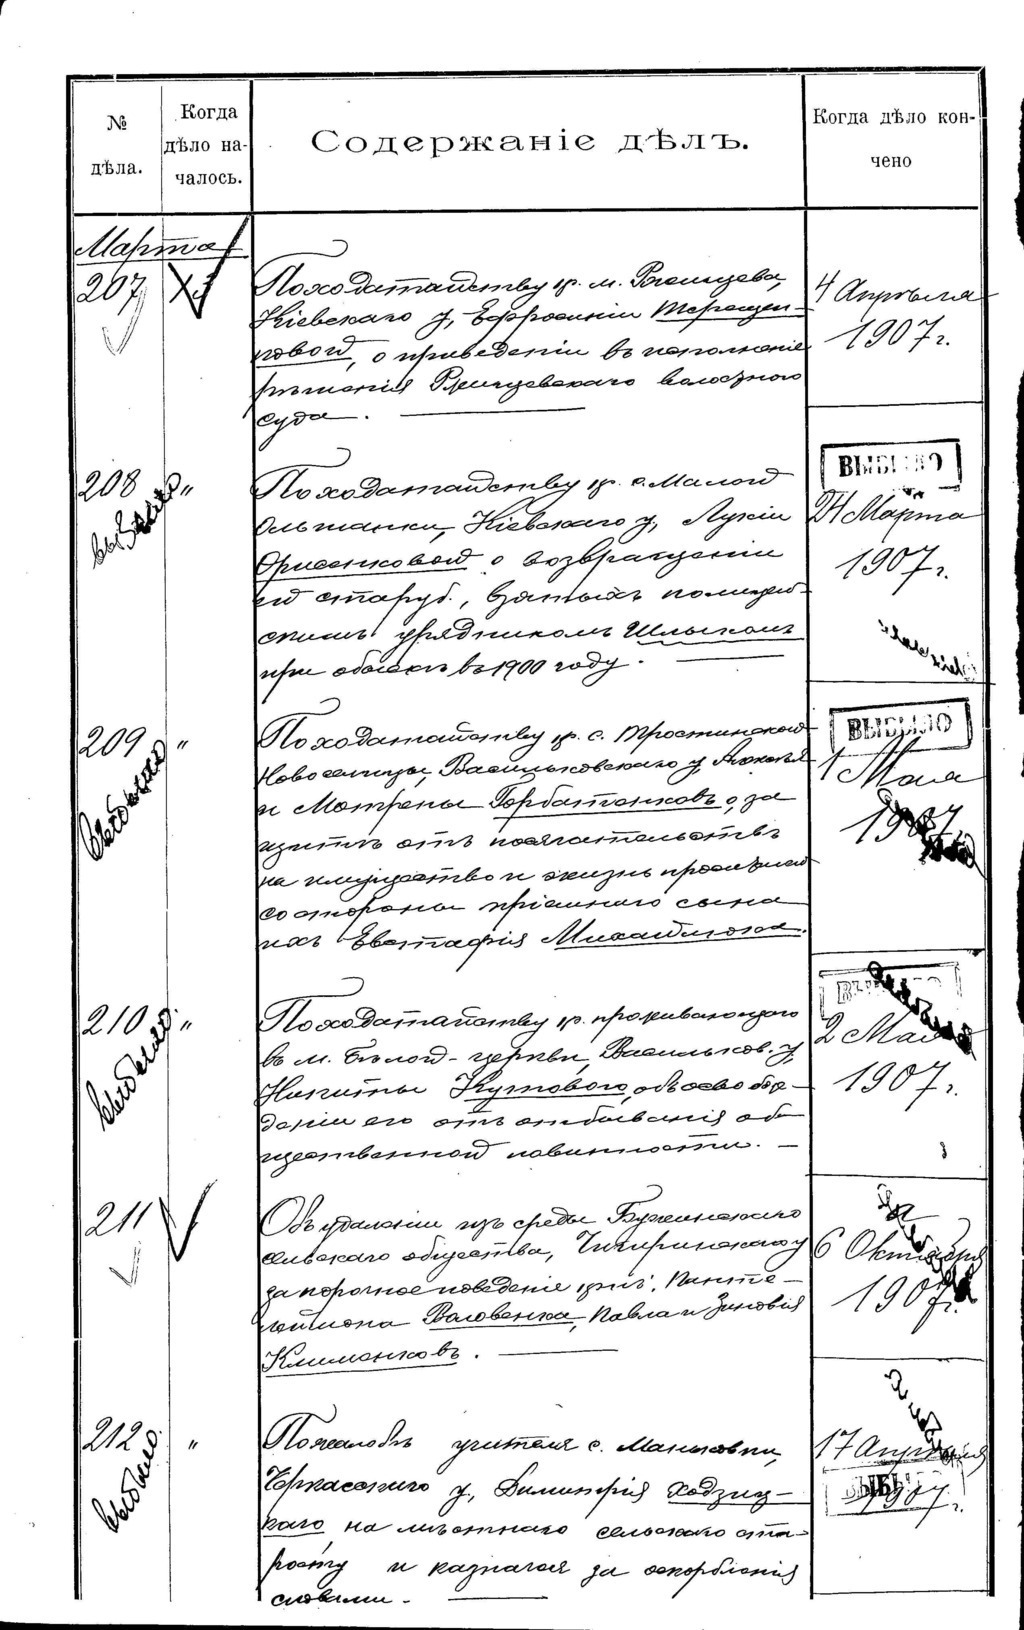 № дѣла.
Когда дѣло началось.
Содержаніе дѣлъ.
Когда дѣло кончено
Марта
207
По ходатайству кр. м.
Кіевскаго у, Ефросиніи Терещен-
ковой, о приведеніи въ исполненіе
рѣшенія волостного
суда.
4 Апрѣля
1907 г.
208 "
выбыло
По ходатайству кр. с. Малой
Ольшанки, Кіевскаго у, Лукіи
о возвращеніи
ей 5 руб., взятыхъ полицей-
скимъ урядникомъ
при обыскѣ въ 1900 году.
ВЫБЫЛО
24 Марта
1907 г.
209 "
Выбыло
По ходатайству кр. с. Тростинской
Новоселицы, Васильковскаго у,
и Мотрены Горбатенковъ о за
щитѣ отъ посягательствъ
на имущество и жизнь
со стороны пріемнаго сына
ихъ Евстафія Михайлюка.
ВЫБЫЛО
1 Мая
1907
210 "
выбыло
По ходатайству кр. проживающаго
въ м. Бѣлой-церкви, Васильков. у,
Никиты Кутового, объ освобо-
деніи его отъ отбыванія об-
щественной повинности.
2 Мая
1907 г.
211
Объ удаленіи изъ среды Бужинскаго
сельскаго общества, Чигиринскаго у
за порочное поведеніе кр-нъ: Панте-
леймона Воловенка, Павла и Зиновія
Клименковъ.
6 Октября
1907 г.
212 "
выбыло.
По жалобѣ учителя с. Маньковки,
Черкасскаго у, Димитрія Ходзиц-
каго на мѣстнаго сельскаго ста-
росту и казначея за оскорбленія
словами.
17 Апрѣля
ВЫБЫЛО
1907 г.